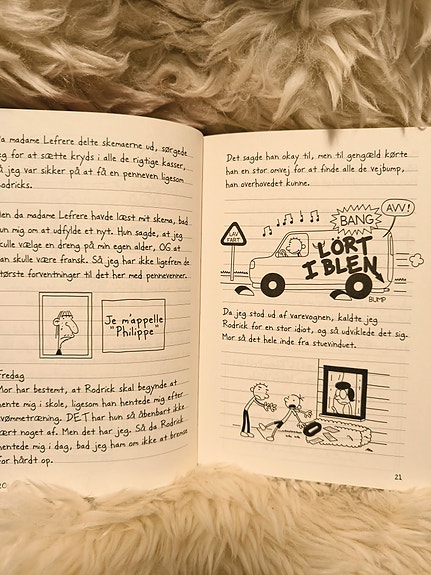 madame Lefrere delte skemaerne ud, sørgede
for at sætte kryds i alle de rigtige kasser,
jeg var sikker på at få en penneven ligesom
Rodricks.
da madame Lefrere havde læst mit skema, bad
hun mig om at udfylde et nyt. Hun sagde, at jeg
skulle vælge en dreng på min egen alder, OG at
han skulle være fransk. Så jeg har ikke ligefrem de
største forventninger til det her med pennevenner.
Je m'appelle
"Philippe"
Fredag
Mor har bestemt, at Rodrick skal begynde at
hente mig i skole, ligesom han hentede mig efter
svømmetræning. DET har hun så åbenbart ikke
lært noget af. Men det har jeg. Så da Rodrick
hentede mig i dag, bad jeg ham om ikke at bremse
for hårdt op.
Det sagde han okay til, men til gengæld kørte
han en stor omvej for at finde alle de vejbump,
han overhovedet kunne.
LAV
FART
BANG
AVV!
LÖRT
I BLEN
BUMP
Da jeg stod ud af varevognen, kaldte jeg
Rodrick for en stor idiot, og så udviklede det sig.
Mor så det hele inde fra stuevinduet.
21